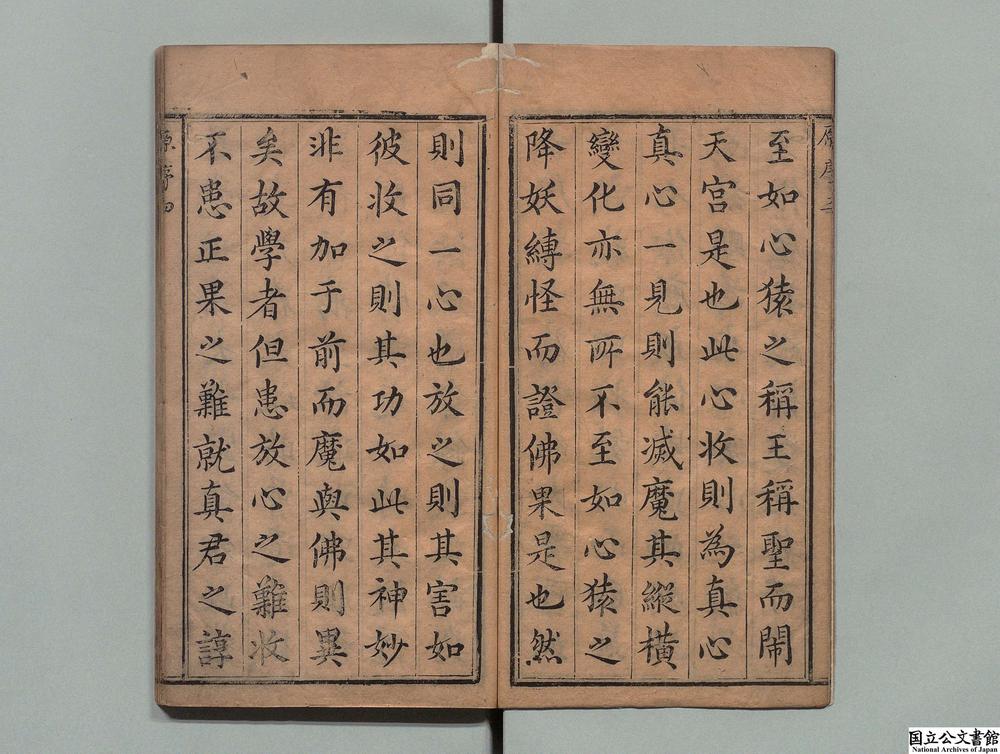 原序三
至如心猿之稱王稱聖而鬧
天宮是也此心收則為真心
真心一見則能滅魔其縱橫
變化亦無所不至如心猿之
降妖縛怪而證佛果是也然
則同一心也放之則其害如
彼收之則其功如此其神妙
非有加于前而魔與佛則異
矣故學者但患放心之難收
不患正果之難就真君之諄
原序四
国立公文書館
National Archives of Japan